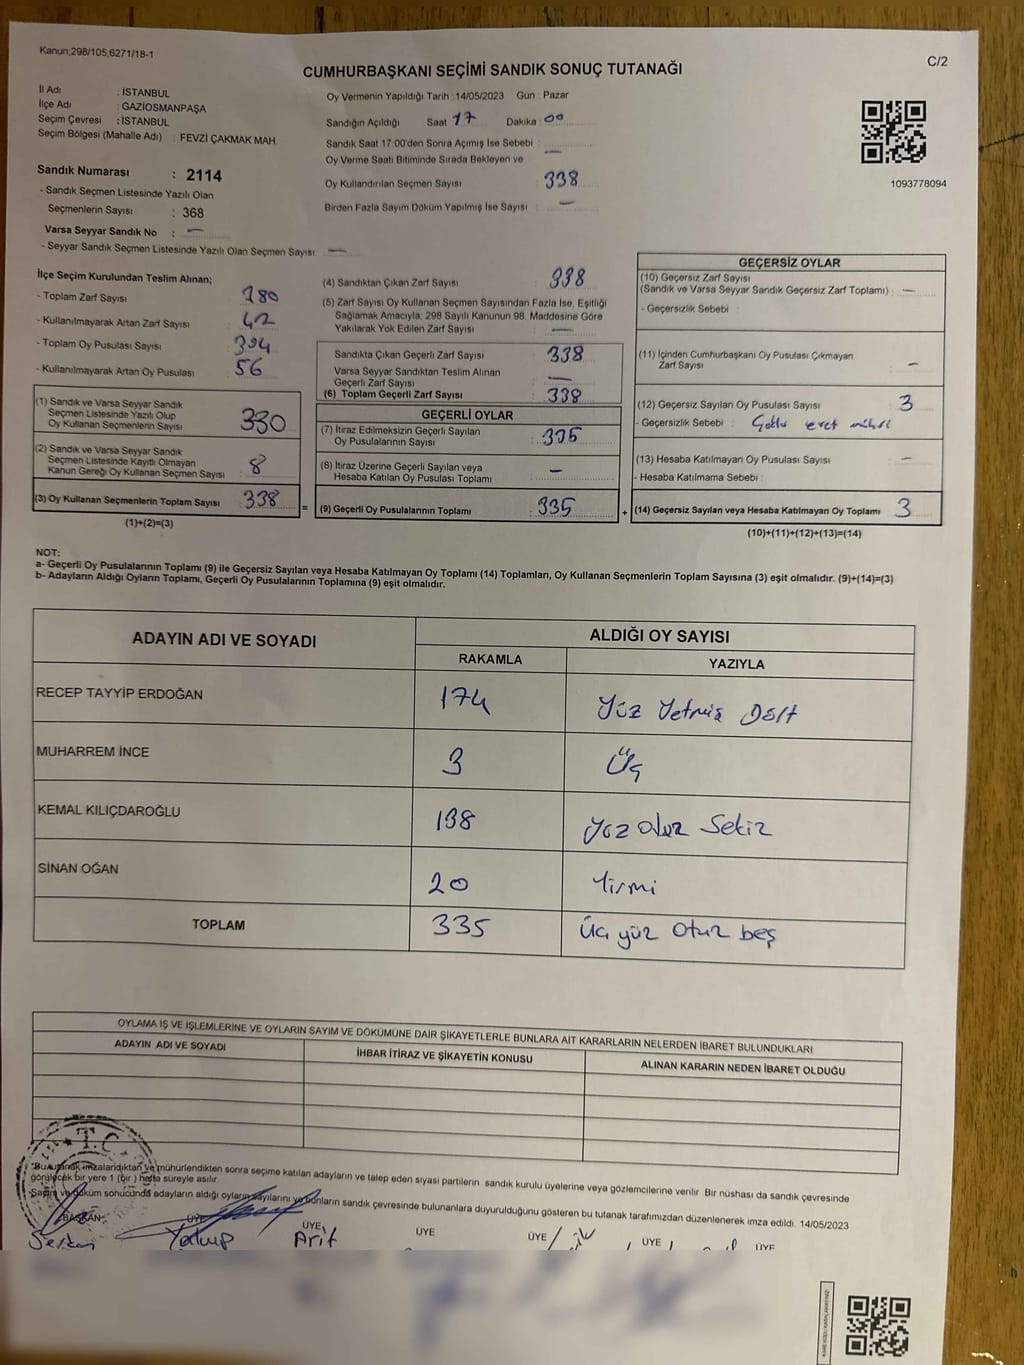 Kanun;298/105,6271/18-1
C/2
CUMHURBAŞKANI SEÇİMİ SANDIK SONUÇ TUTANAĞI
İl Adı : İSTANBUL
İlçe Adı : GAZİOSMANPAŞA
Seçim Çevresi : İSTANBUL
Seçim Bölgesi (Mahalle Adı) : FEVZİ ÇAKMAK MAH.
Sandık Numarası : 2114
- Sandık Seçmen Listesinde Yazılı Olan
Seçmenlerin Sayısı : 368
Varsa Seyyar Sandık No : —
- Seyyar Sandık Seçmen Listesinde Yazılı Olan Seçmen Sayısı: —
Oy Vermenin Yapıldığı Tarih :14/05/2023 Gün : Pazar
Sandığın Açıldığı Saat 17 Dakika 00
Sandık Saat 17:00'den Sonra Açımış İse Sebebi :
Oy Verme Saati Bitiminde Sırada Bekleyen ve —
Oy Kullandırılan Seçmen Sayısı : 338
Birden Fazla Sayım Döküm Yapılmış İse Sayısı : —
1093778094
İlçe Seçim Kurulundan Teslim Alınan;
- Toplam Zarf Sayısı : 380
- Kullanılmayarak Artan Zarf Sayısı : 42
- Toplam Oy Pusulası Sayısı : 394
- Kullanılmayarak Artan Oy Pusulası : 56
(1) Sandık ve Varsa Seyyar Sandık
Seçmen Listesinde Yazılı Olup
Oy Kullanan Seçmenlerin Sayısı : 330
(2) Sandık ve Varsa Seyyar Sandık
Seçmen Listesinde Kayıtlı Olmayan
Kanun Gereği Oy Kullanan Seçmen Sayısı : 8
(3) Oy Kullanan Seçmenlerin Toplam Sayısı : 338
(1)+(2)=(3)
=
(4) Sandıktan Çıkan Zarf Sayısı : 338
(5) Zarf Sayısı Oy Kullanan Seçmen Sayısından Fazla İse, Eşitliği
Sağlamak Amacıyla; 298 Sayılı Kanunun 98. Maddesine Göre
Yakılarak Yok Edilen Zarf Sayısı : —
Sandıkta Çıkan Geçerli Zarf Sayısı : 338
Varsa Seyyar Sandıktan Teslim Alınan
Geçerli Zarf Sayısı : —
(6) Toplam Geçerli Zarf Sayısı : 338
GEÇERLİ OYLAR
(7) İtiraz Edilmeksizin Geçerli Sayılan
Oy Pusulalarının Sayısı : 335
(8) İtiraz Üzerine Geçerli Sayılan veya
Hesaba Katılan Oy Pusulası Toplamı : —
(9) Geçerli Oy Pusulalarının Toplamı : 335
+
GEÇERSİZ OYLAR
(10) Geçersiz Zarf Sayısı
(Sandık ve Varsa Seyyar Sandık Geçersiz Zarf Toplamı) : —
- Geçersizlik Sebebi :
(11) İçinden Cumhurbaşkanı Oy Pusulası Çıkmayan
Zarf Sayısı : —
(12) Geçersiz Sayılan Oy Pusulası Sayısı : 3
- Geçersizlik Sebebi : evet
(13) Hesaba Katılmayan Oy Pusulası Sayısı : —
- Hesaba Katılmama Sebebi :
(14) Geçersiz Sayılan veya Hesaba Katılmayan Oy Toplamı : 3
(10)+(11)+(12)+(13)=(14)
NOT:
a- Geçerli Oy Pusulalarının Toplamı (9) ile Geçersiz Sayılan veya Hesaba Katılmayan Oy Toplamı (14) Toplamları, Oy Kullanan Seçmenlerin Toplam Sayısına (3) eşit olmalıdır. (9)+(14)=(3)
b- Adayların Aldığı Oyların Toplamı, Geçerli Oy Pusulalarının Toplamına (9) eşit olmalıdır.
ADAYIN ADI VE SOYADI ALDIĞI OY SAYISI
RAKAMLA YAZIYLA
RECEP TAYYİP ERDOĞAN 174 Yüz Yetmiş Dört
MUHARREM İNCE 3 Üç
KEMAL KILIÇDAROĞLU 138 Yüz Otuz Sekiz
SİNAN OĞAN 20 Yirmi
TOPLAM 335 Üç yüz Otuz beş
OYLAMA İŞ VE İŞLEMLERİNE VE OYLARIN SAYIM VE DÖKÜMÜNE DAİR ŞİKAYETLERLE BUNLARA AİT KARARLARIN NELERDEN İBARET BULUNDUKLARI
ADAYIN ADI VE SOYADI İHBAR İTİRAZ VE ŞİKAYETİN KONUSU ALINAN KARARIN NEDEN İBARET OLDUĞU
T.C
*Bu tutanak imzalandıktan ve mühürlendikten sonra seçime katılan adayların ve talep eden siyasi partilerin sandık kurulu üyelerine veya gözlemcilerine verilir. Bir nüshası da sandık çevresinde
görülecek bir yere 1 (bir ) hafta süreyle asılır.
Sayım ve döküm sonucunda adayların aldığı oyların sayılarını ve bunların sandık çevresinde bulunanlara duyurulduğunu gösteren bu tutanak tarafımızdan düzenlenerek imza edildi. 14/05/2023
BAŞKAN ÜYE ÜYE ÜYE ÜYE ÜYE ÜYE
Serkan Yakup Arif